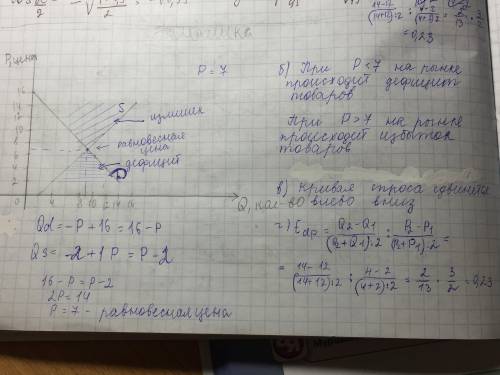 = 0,23
P = 7
P, цена
16
14
12
10
8
6
4
2
0
S
излишек
равновесная
цена
дефицит
D
2 4 6 8 10 12 14 16
Q, кол-во
Qd = -P + 16 = 16 - P
Qs = -2 + 1P = P - 2
16 - P = P - 2
2P = 14
P = 7 - равновесная цена
б) При P < 7 на рынке
происходит дефицит
товаров
При P > 7 на рынке
происходит избыток
товаров
в) Кривая спроса сдвинется
влево вниз
г) Edp = (Q2 - Q1)/((Q2 + Q1):2) : (P2 - P1)/((P2 + P1):2) =
= (14 - 12)/((14 + 12):2) : (4 - 2)/((4 + 2):2) = 2/13 · 3/2 = 0,23